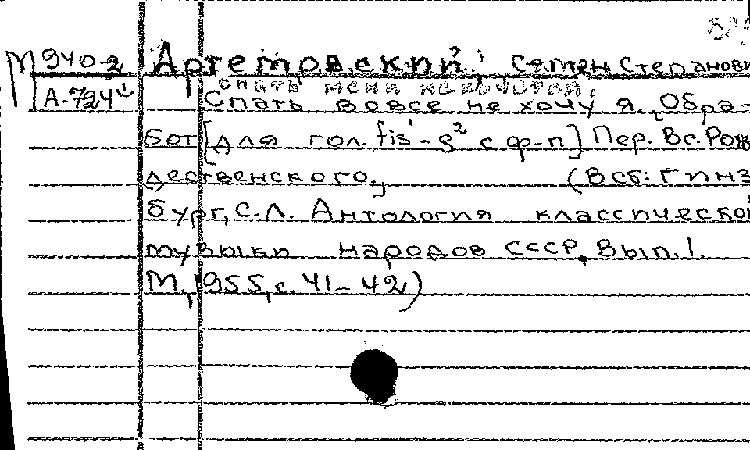 М 940-2 Артемовский, Семен Степанови
А-724
Спать вовсе не хочу я. Обра-
бот [для гол. fis¹-g² с ф-п] Пер. Вс. Рож
дественского. (В сб: Гинз
бург, С.Л. Антология классической
музыки народов СССР, Вып. I.
М, 1955, с. 41-42)